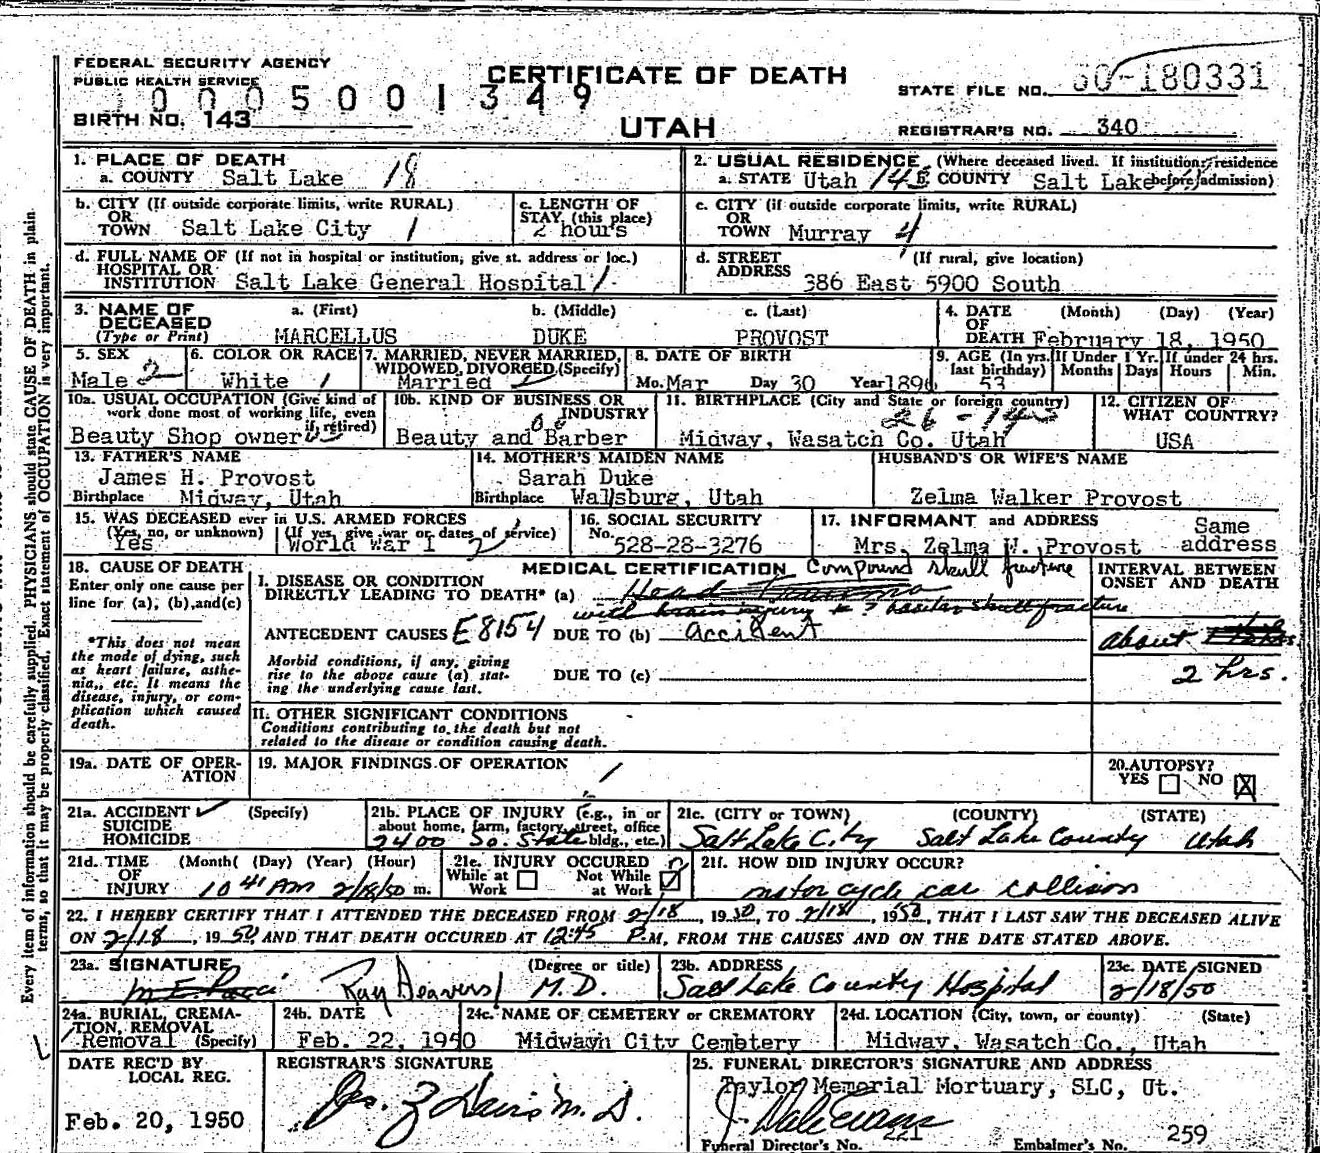 FEDERAL SECURITY AGENCY
PUBLIC HEALTH SERVICE
CERTIFICATE OF DEATH
STATE FILE NO. 50-180331
10005001349
BIRTH NO. 143
UTAH
REGISTRAR'S NO. 340
1. PLACE OF DEATH
a. COUNTY Salt Lake 18
2. USUAL RESIDENCE (Where deceased lived. If institution; residence before admission)
a. STATE Utah 143 COUNTY Salt Lake
b. CITY (If outside corporate limits, write RURAL)
OR
TOWN Salt Lake City 1
c. LENGTH OF
STAY (this place)
2 hours
c. CITY (if outside corporate limits, write RURAL)
OR
TOWN Murray 4
d. FULL NAME OF (If not in hospital or institution, give st. address or loc.)
HOSPITAL OR
INSTITUTION Salt Lake General Hospital 1
d. STREET (If rural, give location)
ADDRESS 386 East 5900 South
3. NAME OF
DECEASED
(Type or Print)
a. (First) b. (Middle) c. (Last)
MARCELLUS DUKE PROVOST
4. DATE (Month) (Day) (Year)
OF
DEATH February 18, 1950
5. SEX
Male 2
6. COLOR OR RACE
White 1
7. MARRIED, NEVER MARRIED,
WIDOWED, DIVORCED (Specify)
Married
8. DATE OF BIRTH
Mo. Mar Day 30 Year 1896
9. AGE (In yrs. last birthday) 53
If Under 1 Yr. Months Days
If under 24 hrs. Hours Min.
10a. USUAL OCCUPATION (Give kind of
work done most of working life, even
if retired)
Beauty Shop owner
10b. KIND OF BUSINESS OR
INDUSTRY
Beauty and Barber
11. BIRTHPLACE (City and State or foreign country)
26-143
Midway, Wasatch Co. Utah
12. CITIZEN OF
WHAT COUNTRY?
USA
13. FATHER'S NAME
James H. Provost
Birthplace Midway, Utah
14. MOTHER'S MAIDEN NAME
Sarah Duke
Birthplace Wallsburg, Utah
HUSBAND'S OR WIFE'S NAME
Zelma Walker Provost
15. WAS DECEASED ever in U.S. ARMED FORCES
(Yes, no, or unknown) (If yes, give war or dates of service)
Yes World War I 2
16. SOCIAL SECURITY
No. 528-28-3276
17. INFORMANT and ADDRESS
Mrs. Zelma W. Provost Same address
18. CAUSE OF DEATH
Enter only one cause per
line for (a), (b), and (c)
*This does not mean
the mode of dying, such
as heart failure, asthe-
nia, etc. It means the
disease, injury, or com-
plication which caused
death.
MEDICAL CERTIFICATION Compound skull fracture
I. DISEASE OR CONDITION
DIRECTLY LEADING TO DEATH* (a) Head Trauma
with brain injury & ? basilar skull fracture
ANTECEDENT CAUSES E8154 DUE TO (b) accident
Morbid conditions, if any, giving
rise to the above cause (a) stat-
ing the underlying cause last.
DUE TO (c)
INTERVAL BETWEEN
ONSET AND DEATH
about
2 hrs.
II. OTHER SIGNIFICANT CONDITIONS
Conditions contributing to the death but not
related to the disease or condition causing death.
19a. DATE OF OPER-
ATION
19. MAJOR FINDINGS OF OPERATION
20. AUTOPSY?
YES NO X
21a. ACCIDENT ✓ (Specify)
SUICIDE
HOMICIDE
21b. PLACE OF INJURY (e.g., in or
about home, farm, factory, street, office
bldg., etc.)
2400 So. State
21c. (CITY or TOWN) (COUNTY) (STATE)
Salt Lake City Salt Lake County Utah
21d. TIME (Month) (Day) (Year) (Hour)
OF
INJURY 10 41 AM 2/18/50 m.
21e. INJURY OCCURED
While at Work Not While at Work ✓
21f. HOW DID INJURY OCCUR?
motorcycle car collision
22. I HEREBY CERTIFY THAT I ATTENDED THE DECEASED FROM 2/18, 1950, TO 2/18, 1950, THAT I LAST SAW THE DECEASED ALIVE
ON 2/18, 1950, AND THAT DEATH OCCURED AT 12:45 P.M, FROM THE CAUSES AND ON THE DATE STATED ABOVE.
23a. SIGNATURE (Degree or title)
Ray M.D.
23b. ADDRESS
Salt Lake County Hospital
23c. DATE SIGNED
2/18/50
24a. BURIAL, CREMA-
TION, REMOVAL
Removal (Specify)
24b. DATE
Feb. 22, 1950
24c. NAME OF CEMETERY or CREMATORY
Midwayn City Cembtery
24d. LOCATION (City, town, or county) (State)
Midway, Wasatch Co., Utah
DATE REC'D BY
LOCAL REG.
Feb. 20, 1950
REGISTRAR'S SIGNATURE
M.D.
25. FUNERAL DIRECTOR'S SIGNATURE AND ADDRESS
Taylor Memorial Mortuary, SLC, Ut.
J. Dale Evans
Funeral Director's No. 221 Embalmer's No. 259
Every item of information should be carefully supplied. PHYSICIANS should state CAUSE OF DEATH in plain
terms, so that it may be properly classified. Exact statement of OCCUPATION is very important.